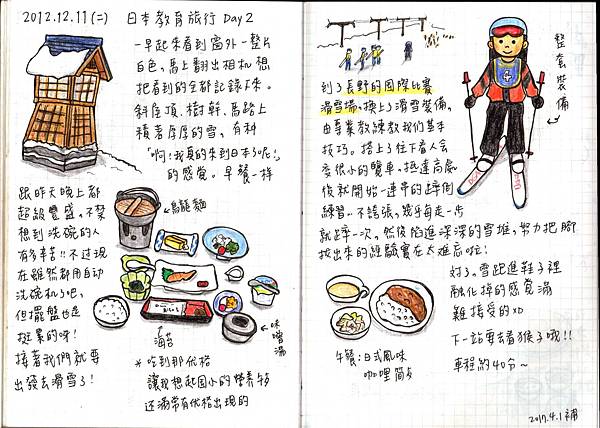 2012.12.11(二) 日本教育旅行 Day 2
一早起來看到窗外一整片
白色，馬上翻出相机想
把看到的全都記錄下來。
斜屋頂、樹幹、馬路上
積著厚厚的雪，有種
「啊！我真的來到日本了呢！」
的感覺。早餐一樣
跟昨天晚上都
超級豐盛，不禁
想到洗碗的人
有多辛苦!! 不过現
在雖然都用自动
洗碗机了吧，
但擺盤也是
挺累的呀！
接著我們就要
出發去滑雪了！
烏龍麵
海苔
味噌湯
*吃到那优格
讓我想起国小的營养午餐
还滿常有优格出現的
到了長野的国際比賽
滑雪場，換上了滑雪裝備，
由專業教練教我們基本
技巧。搭上了往下看人会
变很小的纜車，抵達高處
後就開始一連串的跌倒
練習…不誇張，幾乎每走一步
就跌一次。然後陷進深深的雪堆，努力把腳
拔出來的經驗實在太難忘啦！
整套裝備
对了，雪跑進鞋子裡
融化掉的感覺滿
難接受的xD
下一站要去看猴子哦!!
車程約40分~
午餐：日式風味
咖哩簡餐
2017.4.1 補